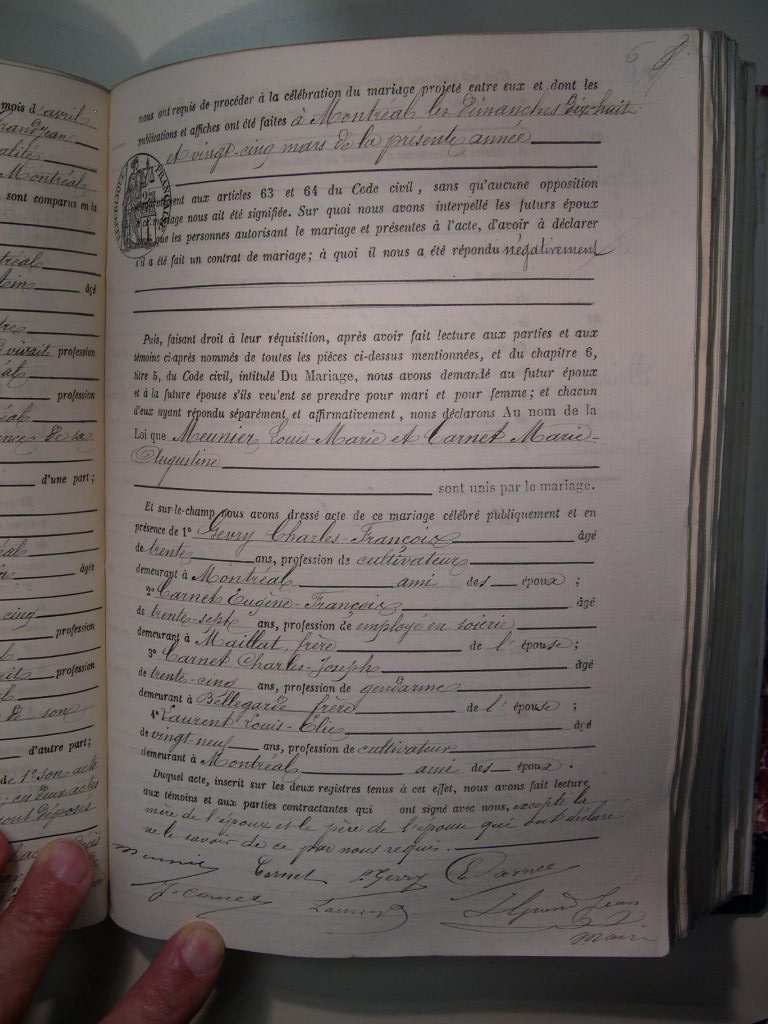 mois d'avril
alité
Montréal
sont comparus en la
âgé
profession
profession
d'une part ;
âgée
cinq
profession
profession
de son
d'autre part ;
de 1° son acte
6
nous ont requis de procéder à la célébration du mariage projeté entre eux et dont les
publications et affiches ont été faites à Montréal les dimanches dix-huit
et vingt-cinq mars de la présente année
RÉPUBLIQUE FRANÇAISE
aux articles 63 et 64 du Code civil, sans qu'aucune opposition
mariage nous ait été signifiée. Sur quoi nous avons interpellé les futurs époux
que les personnes autorisant le mariage et présentes à l'acte, d'avoir à déclarer
s'il a été fait un contrat de mariage ; à quoi il nous a été répondu négativement
Puis, faisant droit à leur réquisition, après avoir fait lecture aux parties et aux
témoins ci-après nommés de toutes les pièces ci-dessus mentionnées, et du chapitre 6,
titre 5, du Code civil, intitulé Du Mariage, nous avons demandé au futur époux
et à la future épouse s'ils veulent se prendre pour mari et pour femme ; et chacun
d'eux ayant répondu séparément et affirmativement, nous déclarons Au nom de la
Loi que Meunier Louis-Marie et Carnet Marie-
Augustine
sont unis par le mariage.
Et sur-le-champ nous avons dressé acte de ce mariage célébré publiquement et en
présence de 1° Gevry Charles-François âgé
de trente ans, profession de cultivateur
demeurant à Montréal ami des époux ;
2° Carnet Eugène-François âgé
de trente-sept ans, profession de employé en soierie
demeurant à Maillat, frère de l'épouse ;
3° Carnet Charles-Joseph âgé
de trente-cinq ans, profession de gendarme
demeurant à Bellegarde frère de l'épouse ;
4° Laurent Louis-Elie âgé
de vingt-neuf ans, profession de cultivateur
demeurant à Montréal ami des époux.
Duquel acte, inscrit sur les deux registres tenus à cet effet, nous avons fait lecture
aux témoins et aux parties contractantes qui ont signé avec nous, excepté la
mère de l'époux et le père de l'épouse qui ont déclaré
ne le savoir de ce par nous requis.
Meunier Carnet Gevry E Carnet
Carnet Laurent Grand Jean
Maire